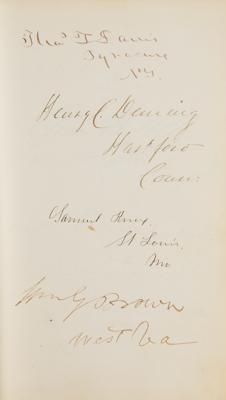 Thos T Davis
Syracuse
N.Y.
Henry C. Deming
Hartford
Conn:
Samuel Knox,
St Louis,
Mo
Wm G Brown
West Va